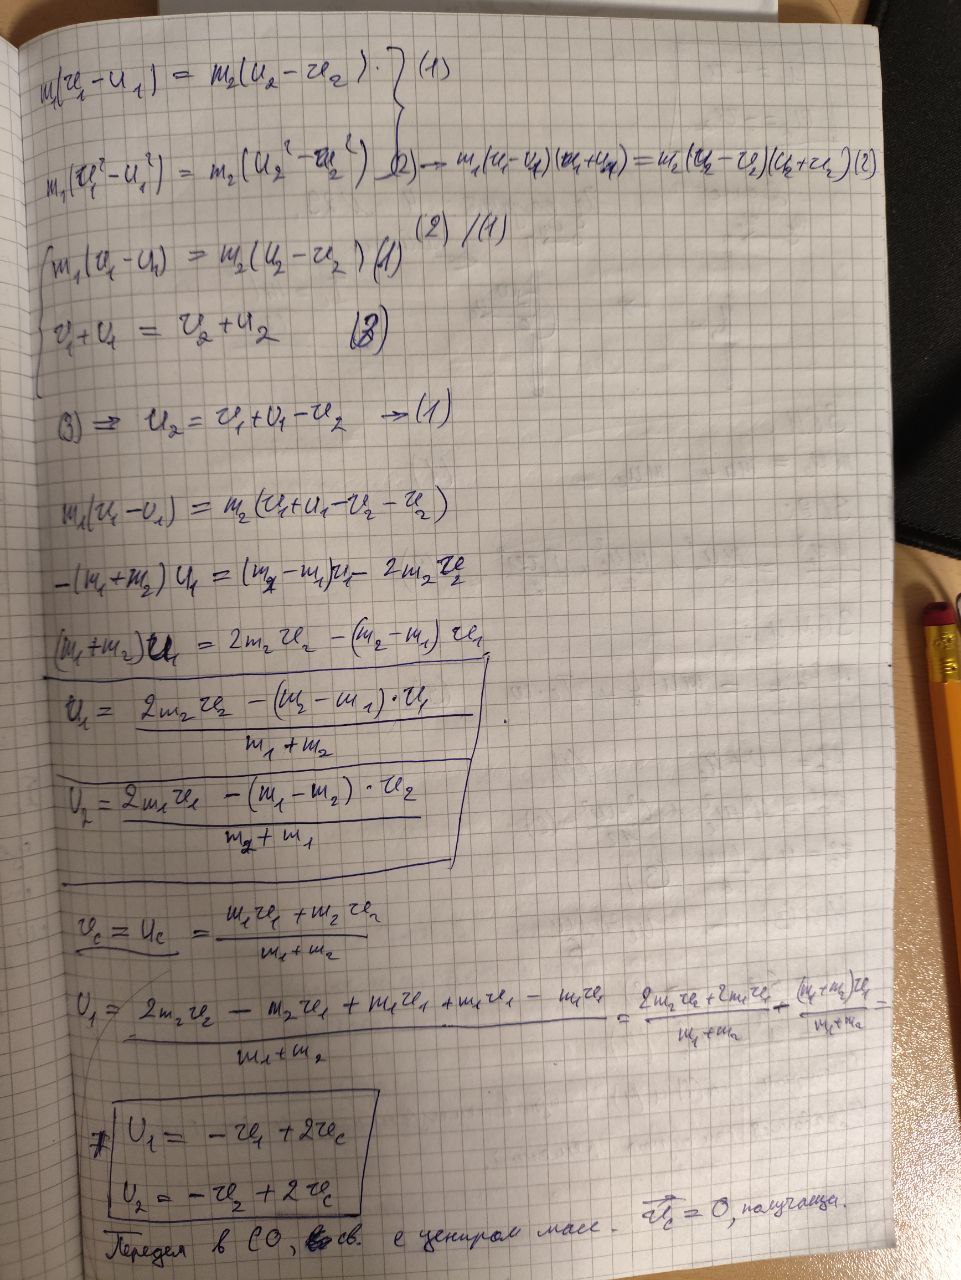 m₁(v₁ - u₁) = m₂(u₂ - v₂). } (1)
m₁(v₁² - u₁²) = m₂(u₂² - v₂²) (2) → m₁(v₁-u₁)(v₁+u₁) = m₂(u₂ - v₂)(u₂+v₂) (2)
(2) / (1)
{ m₁(v₁ - u₁) = m₂(u₂ - v₂) (1)
v₁ + u₁ = v₂ + u₂ (3)
(3) ⇒ u₂ = v₁ + u₁ - v₂ → (1)
m₁(v₁ - u₁) = m₂(v₁ + u₁ - v₂ - v₂)
-(m₁ + m₂) u₁ = (m₂ - m₁)v₁ - 2m₂v₂
(m₁ + m₂)u₁ = 2m₂v₂ - (m₂ - m₁) v₁
u₁ = 2m₂v₂ - (m₂ - m₁) · v₁ / m₁ + m₂
u₂ = 2m₁v₁ - (m₁ - m₂) · v₂ / m₂ + m₁
v_c = u_c = m₁v₁ + m₂v₂ / m₁ + m₂
u₁ = 2m₂v₂ - m₂v₁ + m₁v₁ + m₁v₁ - m₁v₁ / m₁ + m₂ = 2m₂v₂ + 2m₁v₁ / m₁ + m₂ - (m₁ + m₂)v₁ / m₁ + m₂ =
u₁ = -v₁ + 2v_c
u₂ = -v₂ + 2v_c
Передем в СО, св. с центром масс. v⃗_c = 0, получаем.